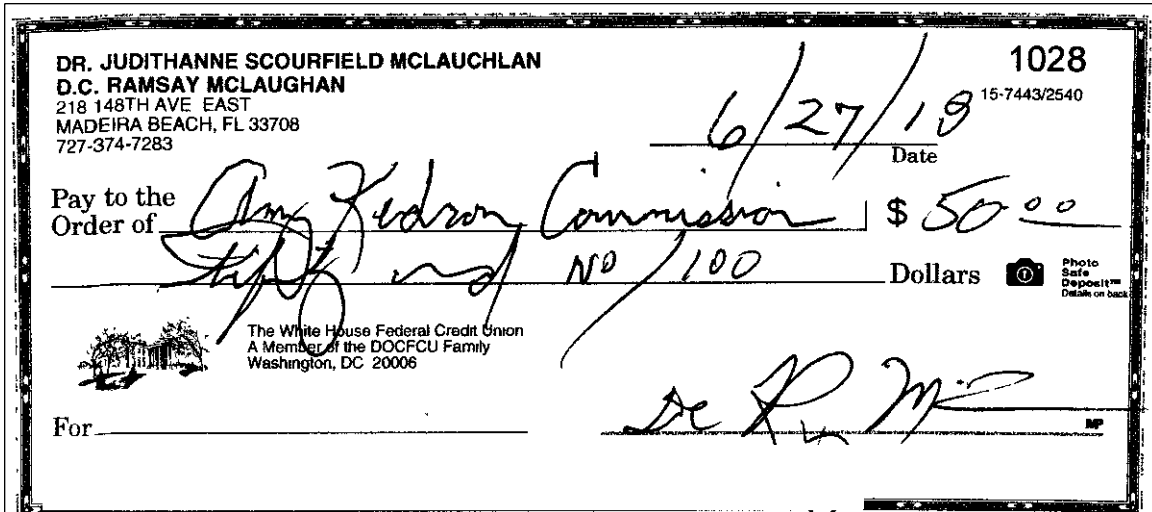 DR. JUDITHANNE SCOURFIELD MCLAUCHLAN 1028
D.C. RAMSAY MCLAUGHAN
218 148TH AVE EAST 15-7443/2540
MADEIRA BEACH, FL 33708 6/27/18
727-374-7283 Date
Pay to the
Order of Amy Kedron Commission $ 50.00
Fifty and No/100 Dollars Photo
Safe
Deposit™
Details on back
The White House Federal Credit Union
A Member of the DOCFCU Family
Washington, DC 20006
For MP